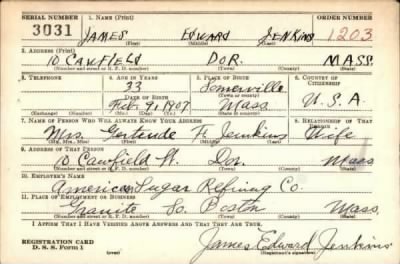 SERIAL NUMBER 1. NAME (Print) ORDER NUMBER
3031 JAMES EDWARD JENKINS 1203
(First) (Middle) (Last)
2. ADDRESS (Print)
10 CAWFIELD DOR. MASS.
(Number and street or R. F. D. number) (Town) (County) (State)
3. TELEPHONE 4. AGE IN YEARS 5. PLACE OF BIRTH 6. COUNTRY OF CITIZENSHIP
33 Somerville
DATE OF BIRTH (Town or county)
Feb. 9, 1907 Mass U.S.A.
(Exchange) (Number) (Mo.) (Day) (Yr.) (State or country)
7. NAME OF PERSON WHO WILL ALWAYS KNOW YOUR ADDRESS 8. RELATIONSHIP OF THAT PERSON
Mrs. Gertrude F. Jenkins Wife
(Mr., Mrs., Miss) (First) (Middle) (Last)
9. ADDRESS OF THAT PERSON
10 Cawfield St. Dor. Mass
(Number and street or R. F. D. number) (Town) (County) (State)
10. EMPLOYER'S NAME
American Sugar Refining Co.
11. PLACE OF EMPLOYMENT OR BUSINESS
Granite So. Boston Mass.
(Number and street or R. F. D. number) (Town) (County) (State)
I AFFIRM THAT I HAVE VERIFIED ABOVE ANSWERS AND THAT THEY ARE TRUE.
REGISTRATION CARD
D. S. S. Form 1 (over) James Edward Jenkins
(Registrant's signature)